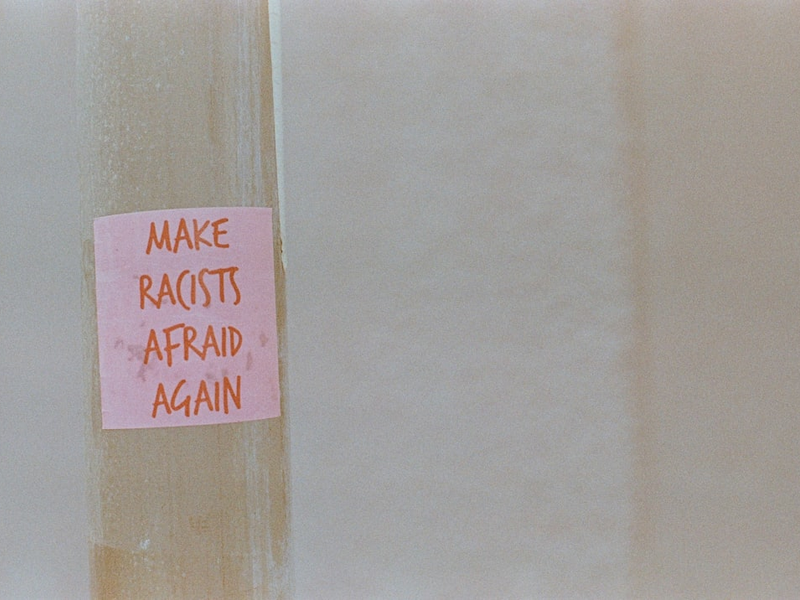 MAKE
RACISTS
AFRAID
AGAIN